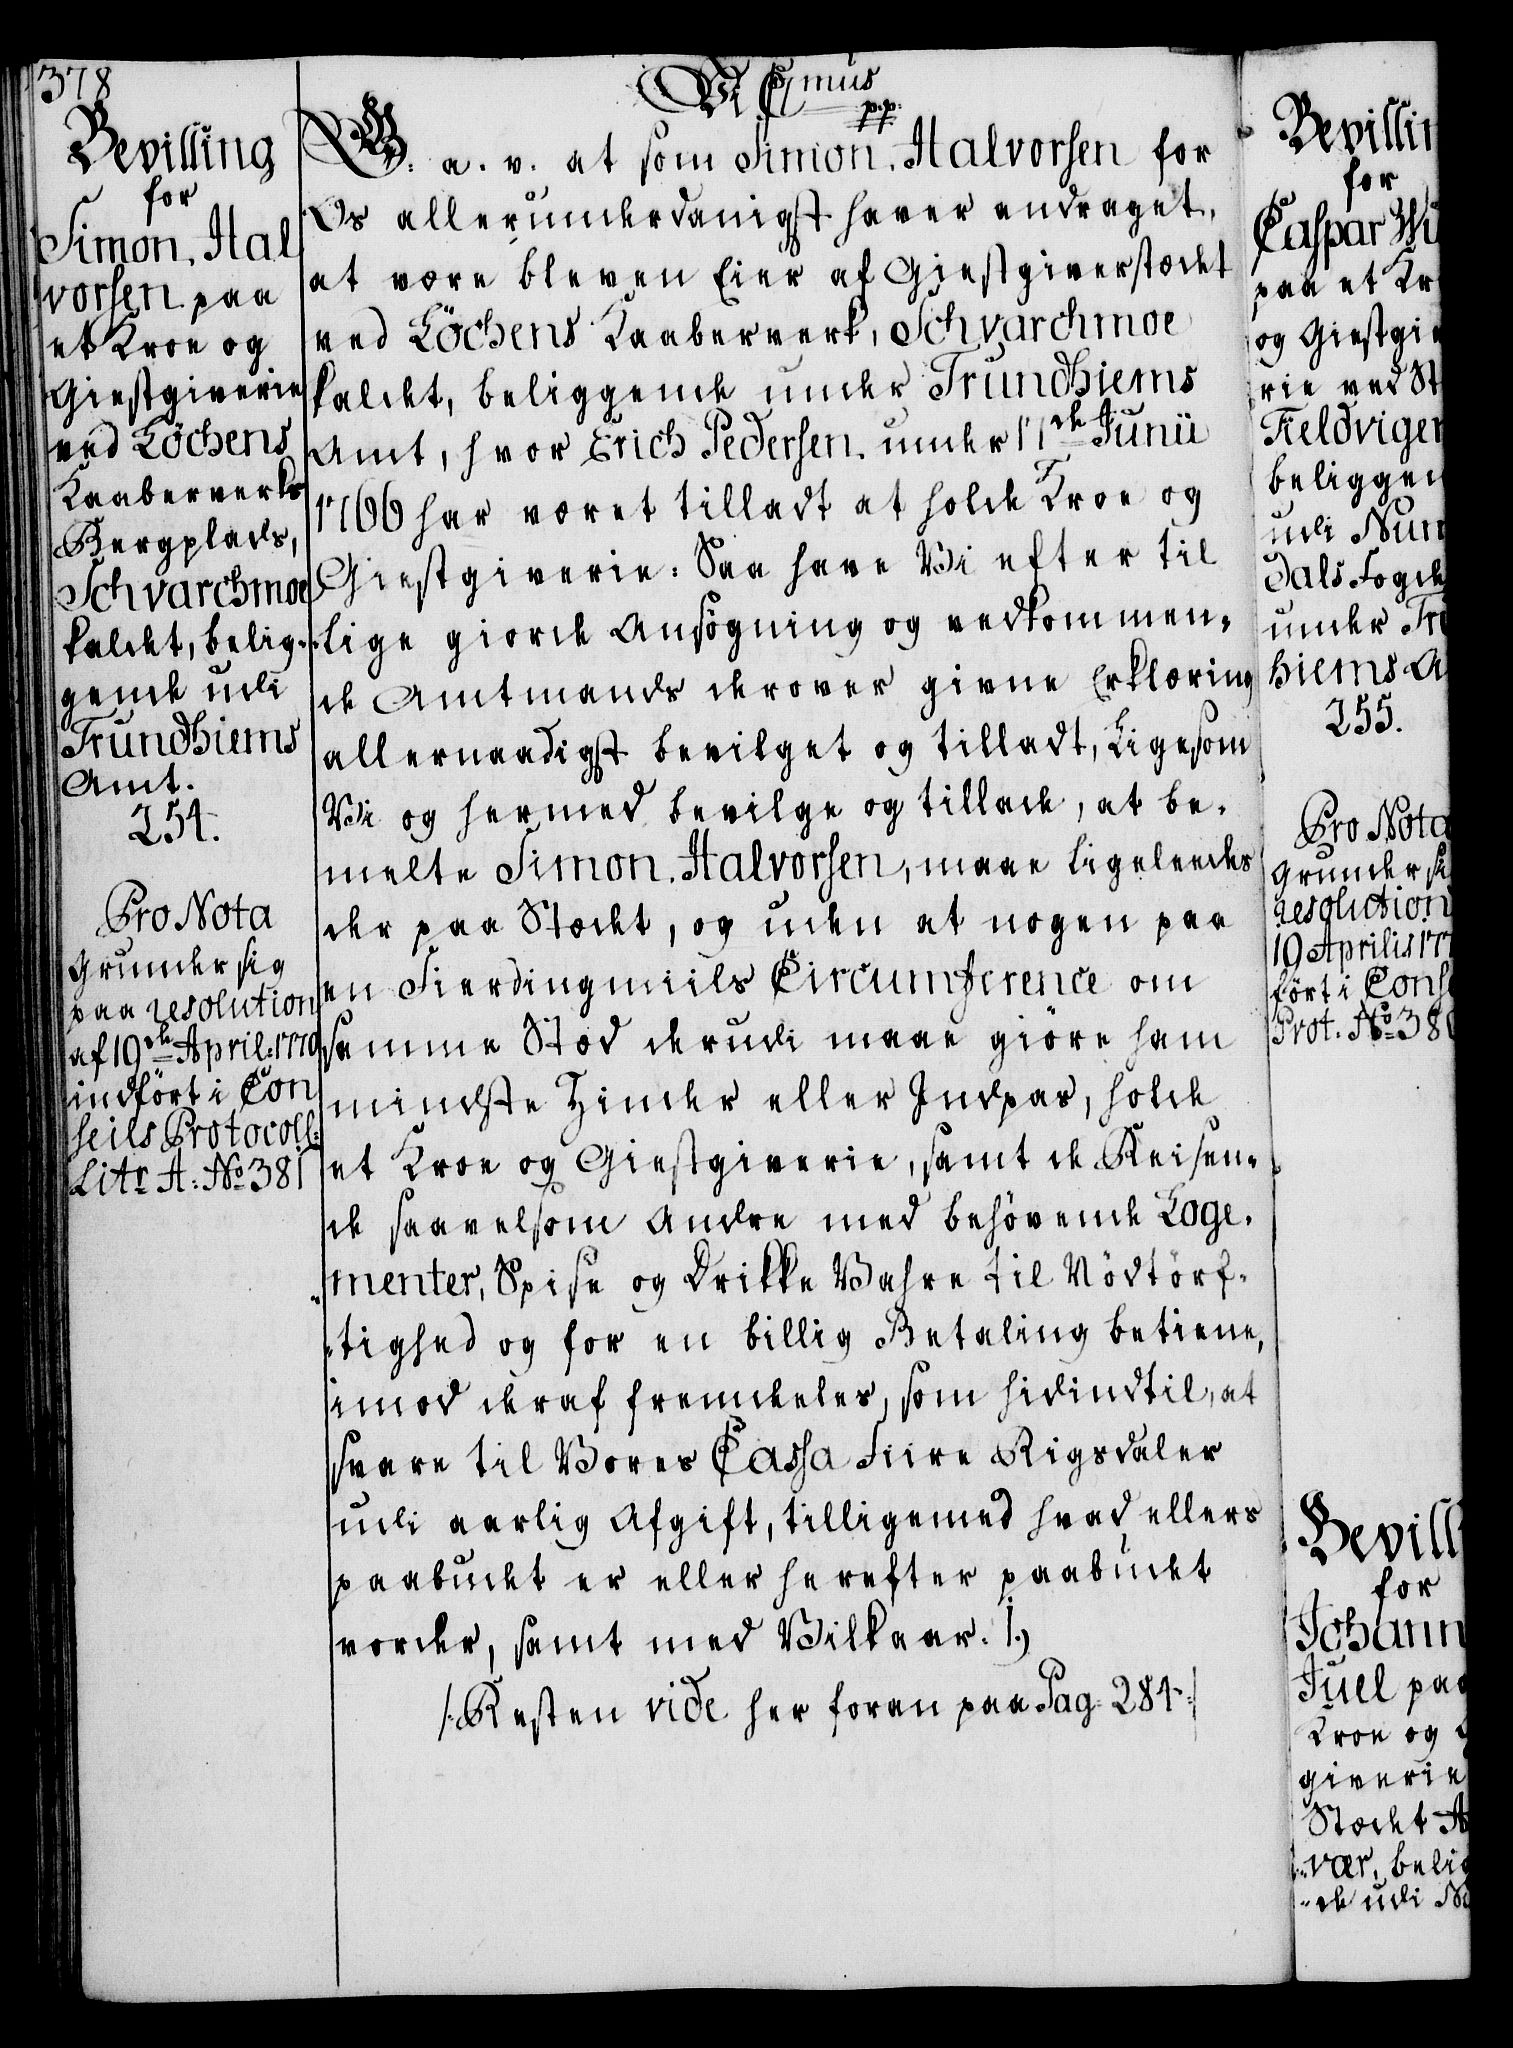 378
Bevilling
for
Simon, Hal
vorsen paa
et Kroe og
Giestgiverie
ved Löchens
Kaaberverks
Bergplads,
Schvarchmoe
kaldet, belig-
gende udi
Trundhiems
Amt.
254.
Pro Nota
Grunder sig
paa resolution
af 19de April: 1770
indfört i Con
seils Protocoll:
Litr A: No 381
Vi C 7mus
p.p.
G. a. v. at som Simon, Halvorsen for
Os allerunderdanigst haver andraget,
at være bleven Eier af Giestgiverstædet
ved Löchens Kaaberverk, Schvarchmoe
kaldet, beliggende under Trundhiems
Amt, hvor Erich Pedersen, under 11de Junii
1766 har været tilladt at holde Kroe og
Giestgiverie: Saa have Vi efter til
lige giorde Ansøgning og vedkommen-
de Amtmands derover givne Erklæring
allernaadigst bevilget og tilladt, Ligesom
Vi og hermed bevilge og tillade, at be-
melte Simon, Halvorsen, maae ligeleedes
der paa Stædet, og uden at nogen paa
en Fierdingmiils Circumference om
samme Stæd derudi maae giöre ham
mindste Hinder eller Indpas, holde
et Kroe og Giestgiverie, samt de Reisen-
de saavelsom Andre med behövende Loge-
menter, Spise og Drikke Vahre til Nödtörf-
tighed og for en billig Betaling betiene,
imod deraf fremdeles, som hidindtil, at
svare til Vores Cassa Fiire Rigsdaler
udi aarlig Afgift, tilligemed hvad ellers
paabudet er eller herefter paabudet
vorder, samt med Vilkaar. 1.)
/: Resten vide her foran paa Pag. 284 :/
Bevillin
for
Caspar Wi
paa et Kr
og Giestgie
rie ved St
Fieldviger
beliggen
udi Num
dals Fogde
under Tru
hiems A
255.
Pro Nota
Grunder si
resolution
19 Aprilis 177
fört i Cons
Prot. No 38
Bevill
for
Johann
Juel paa
Kroe og
giverie
Stædet A
vær, belig
de udi N